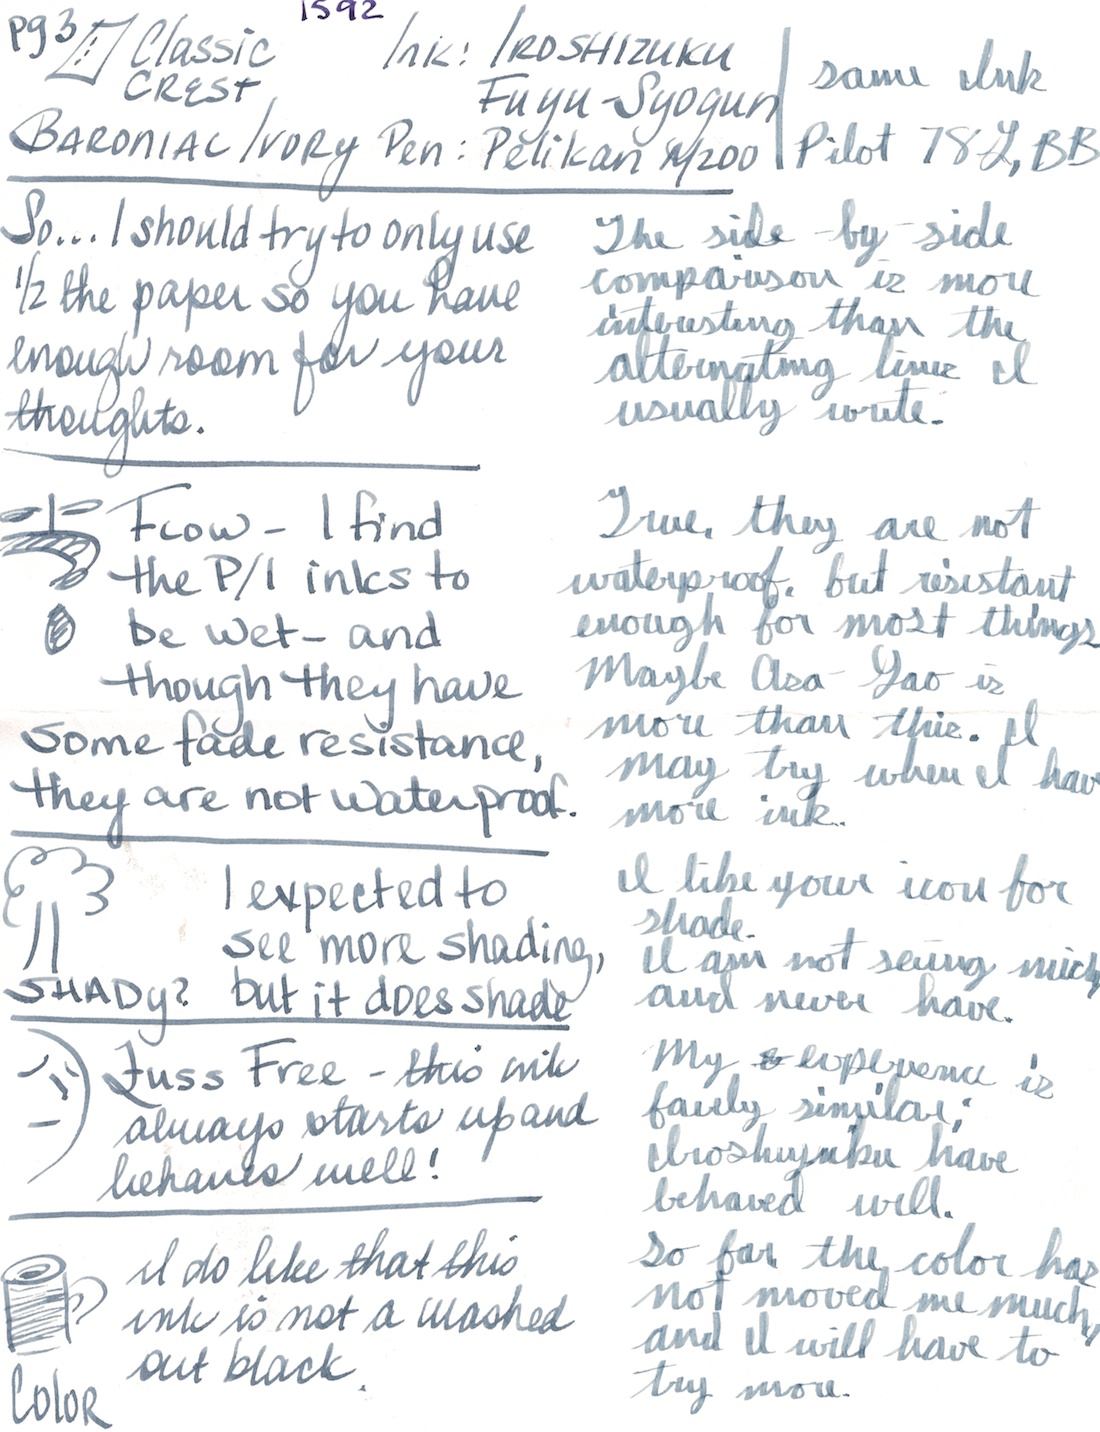 1592
pg 3
Classic
CREST
BARONIAL IVORY
Ink: IROSHIZUKU
Fuyu-Syogun
Pen: Pelikan M200
same Ink
Pilot 78G, BB
So... I should try to only use
1/2 the paper so you have
enough room for your
thoughts.
The side-by-side
comparison is more
interesting than the
alternating lines I
usually write.
Flow - I find
the P/I inks to
be wet - and
though they have
some fade resistance,
they are not waterproof.
True, they are not
waterproof, but resistant
enough for most things.
Maybe Asa-Gao is
more than this. I
may try when I have
more ink.
SHADY?
I expected to
see more shading,
but it does shade
I like your icon for
shade.
I am not seeing much,
and never have.
Fuss Free - this ink
always starts up and
behaves well!
My experience is
fairly similar;
Iroshizuku have
behaved well.
Color
I do like that this
ink is not a washed
out black.
So far the color has
not moved me much,
and I will have to
try more.